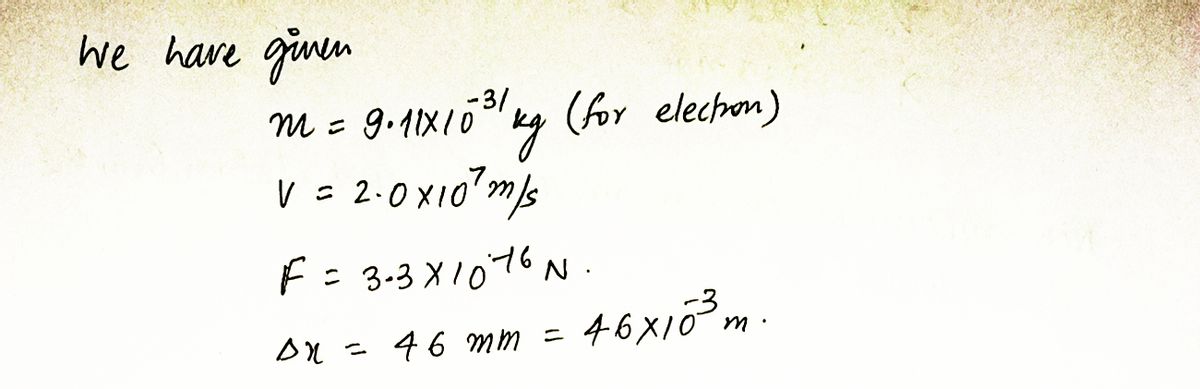 We have given
m = 9.11X10⁻³¹ kg (for electron)
V = 2.0 X10⁷ m/s
F = 3.3 X10⁻¹⁶ N.
Δx = 46 mm = 46X10⁻³ m.